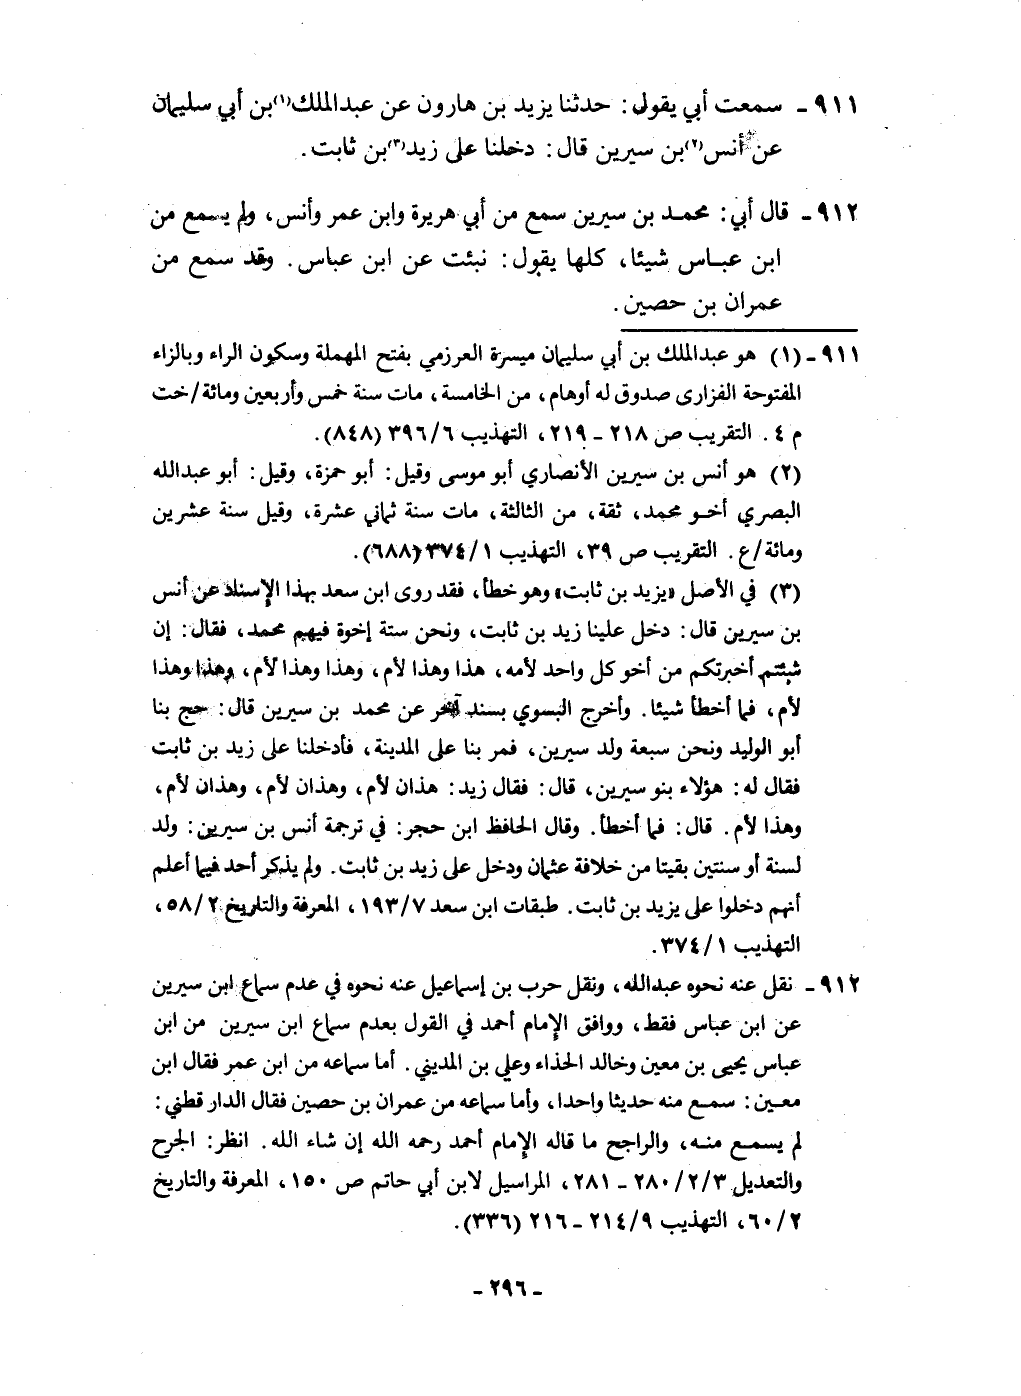 ٩١١ ـ سمعت أبي يقول: حدثنا يزيد بن هارون عن عبدالملك(١) بن أبي سليمان
عن أنس(٢) بن سيرين قال: دخلنا على زيد(٣) بن ثابت.
٩١٢ ـ قال أبي: محمد بن سيرين سمع من أبي هريرة وابن عمر وأنس، ولم يسمع من
ابن عباس شيئا، كلها يقول: نبئت عن ابن عباس. وقد سمع من
عمران بن حصين.
٩١١ ـ (١) هو عبدالملك بن أبي سليمان ميسرة العرزمي بفتح المهملة وسكون الراء وبالزاء
المفتوحة الفزارى صدوق له أوهام، من الخامسة، مات سنة خمس وأربعين ومائة/خت
م ٤. التقريب ص ٢١٨ ـ ٢١٩، التهذيب ٣٩٦/٦ (٨٤٨).
(٢) هو أنس بن سيرين الأنصاري أبو موسى وقيل: أبو حمزة، وقيل: أبو عبدالله
البصري أخو محمد، ثقة، من الثالثة، مات سنة ثماني عشرة، وقيل سنة عشرين
ومائة/ع. التقريب ص ٣٩، التهذيب ٣٧٤/١ (٦٨٨).
(٣) في الأصل «يزيد بن ثابت» وهو خطأ، فقد روى ابن سعد بهذا الإسناد عن أنس
بن سيرين قال: دخل علينا زيد بن ثابت، ونحن ستة إخوة فيهم محمد، فقال: إن
شئتم أخبرتكم من أخو كل واحد لأمه، هذا وهذا لأم، وهذا وهذا لأم، وهذا وهذا
لأم، فما أخطأ شيئا. وأخرج البسوي بسند آخر عن محمد بن سيرين قال: حج بنا
أبو الوليد ونحن سبعة ولد سيرين، فمر بنا على المدينة، فأدخلنا على زيد بن ثابت
فقال له: هؤلاء بنو سيرين، قال: فقال زيد: هذان لأم، وهذان لأم، وهذان لأم،
وهذا لأم. قال: فما أخطأ. وقال الحافظ ابن حجر: في ترجمة أنس بن سيرين: ولد
لسنة أو سنتين بقيتا من خلافة عثمان ودخل على زيد بن ثابت. ولم يذكر أحد فيما أعلم
أنهم دخلوا على يزيد بن ثابت. طبقات ابن سعد ١٩٣/٧، المعرفة والتاريخ ٥٨/٢،
التهذيب ٣٧٤/١.
٩١٢ ـ نقل عنه نحوه عبدالله، ونقل حرب بن إسماعيل عنه نحوه في عدم سماع ابن سيرين
عن ابن عباس فقط، ووافق الإمام أحمد في القول بعدم سماع ابن سيرين من ابن
عباس يحيى بن معين وخالد الحذاء وعلي بن المديني. أما سماعه من ابن عمر فقال ابن
معين: سمع منه حديثا واحدا، وأما سماعه من عمران بن حصين فقال الدار قطني:
لم يسمع منه، والراجح ما قاله الإمام أحمد رحمه الله إن شاء الله. انظر: الجرح
والتعديل ٢٨٠/٢/٣ ـ ٢٨١، المراسيل لابن أبي حاتم ص ١٥٠، المعرفة والتاريخ
٦٠/٢، التهذيب ٢١٤/٩ ـ ٢١٦ (٣٣٦).
ـ ٢٩٦ ـ